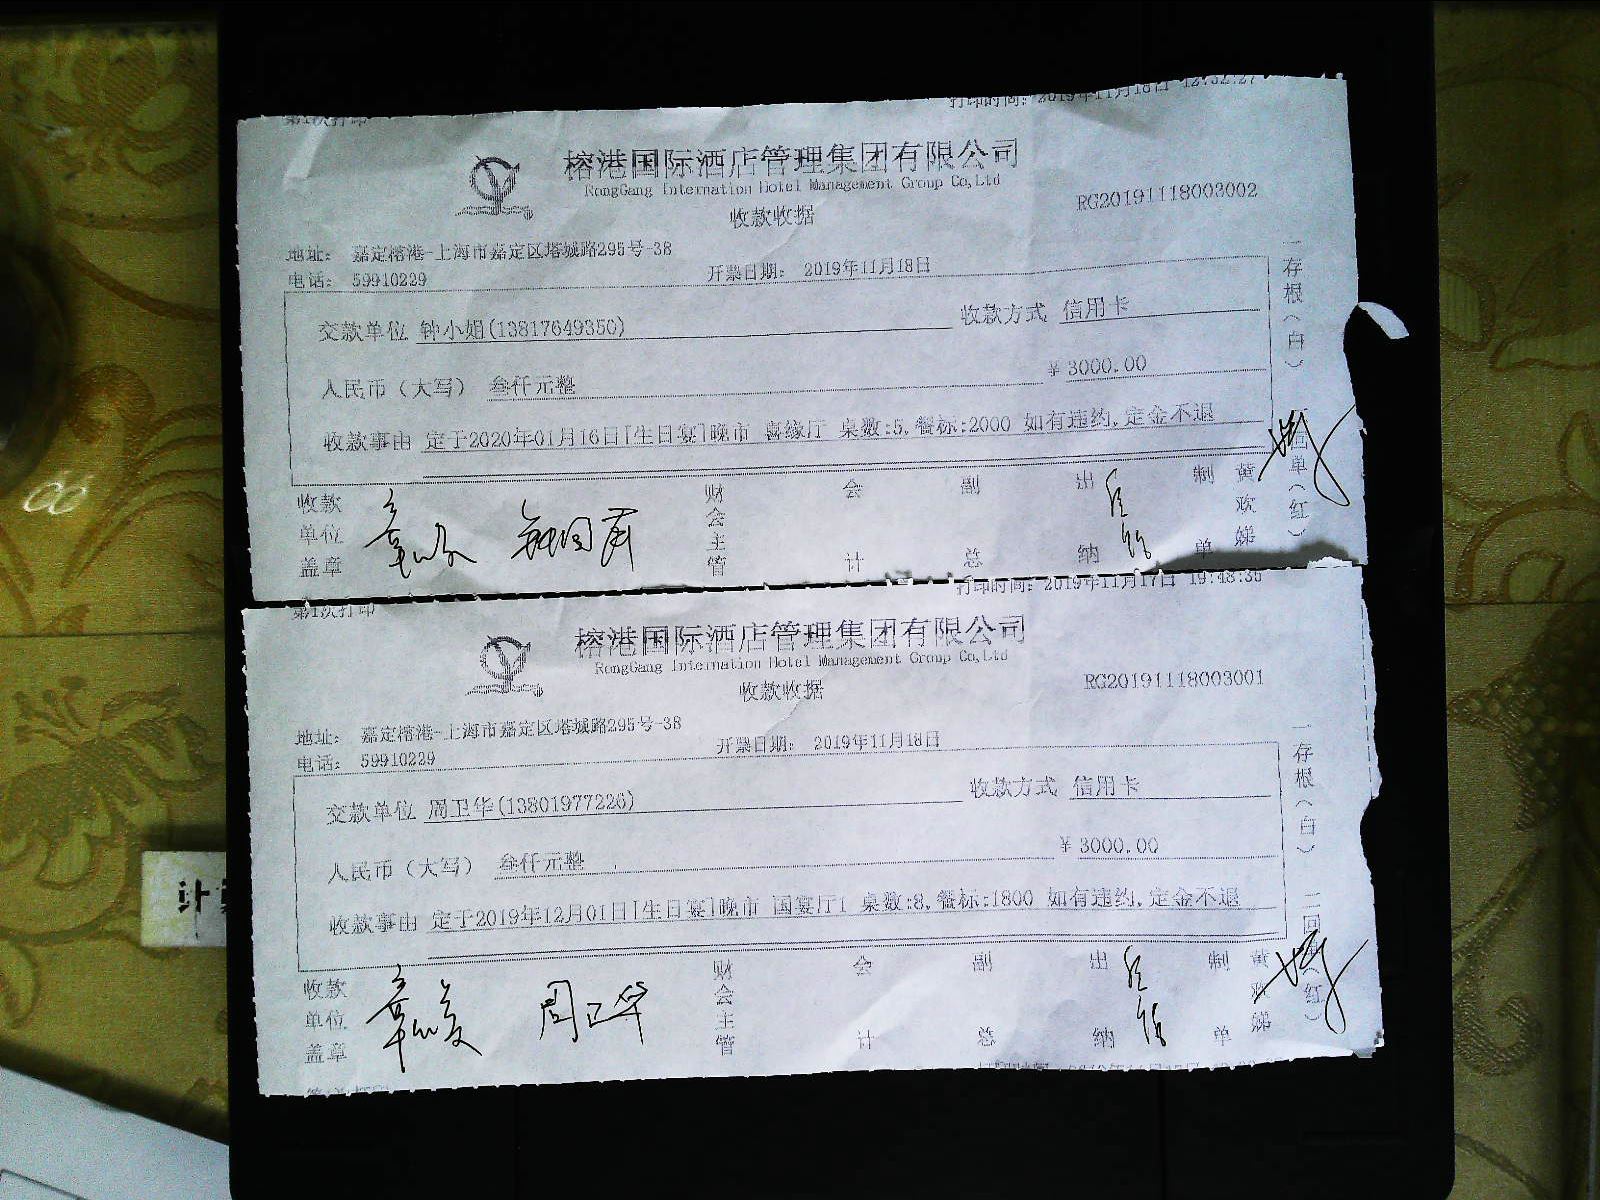 第1次打印 打印时间: 2019年11月18日 12:32:27
榕港国际酒店管理集团有限公司
RongGang Internation Hotel Management Group Co,Ltd
收款收据
RG20191118003002
地址: 嘉定榕港-上海市嘉定区塔城路295号-38
电话: 59910229 开票日期: 2019年11月18日
交款单位 钟小娟(13817649350) 收款方式 信用卡
人民币（大写） 叁仟元整 ¥3000.00
收款事由 定于2020年01月16日[生日宴]晚市 喜缘厅 桌数:5,餐标:2000 如有违约,定金不退
收款单位盖章 财会主管 会计 副总 出纳 制单 黄欢娣
一存根（白） 二回单（红）
第1次打印 打印时间: 2019年11月17日 19:48:35
榕港国际酒店管理集团有限公司
RongGang Internation Hotel Management Group Co,Ltd
收款收据
RG20191118003001
地址: 嘉定榕港-上海市嘉定区塔城路295号-38
电话: 59910229 开票日期: 2019年11月18日
交款单位 周卫华(13801977226) 收款方式 信用卡
人民币（大写） 叁仟元整 ¥3000.00
收款事由 定于2019年12月01日[生日宴]晚市 国宴厅1 桌数:8,餐标:1800 如有违约,定金不退
收款单位盖章 周卫华 财会主管 会计 副总 出纳 制单 黄欢娣
一存根（白） 二回单（红）
计